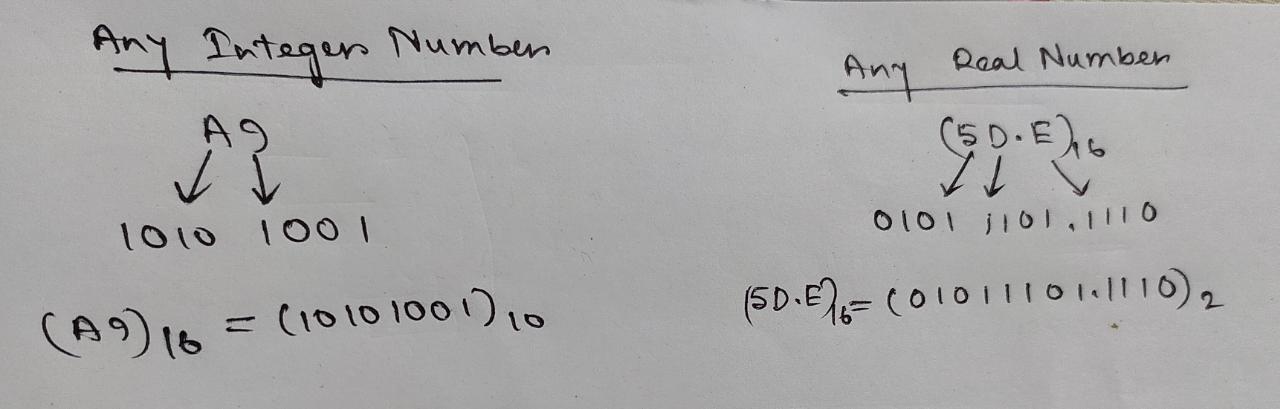 Any Integer Number
A9
1010 1001
(A9)16 = (10101001)10
Any Real Number
(5D.E)16
0101 1101.1110
(5D.E)16 = (01011101.1110)2